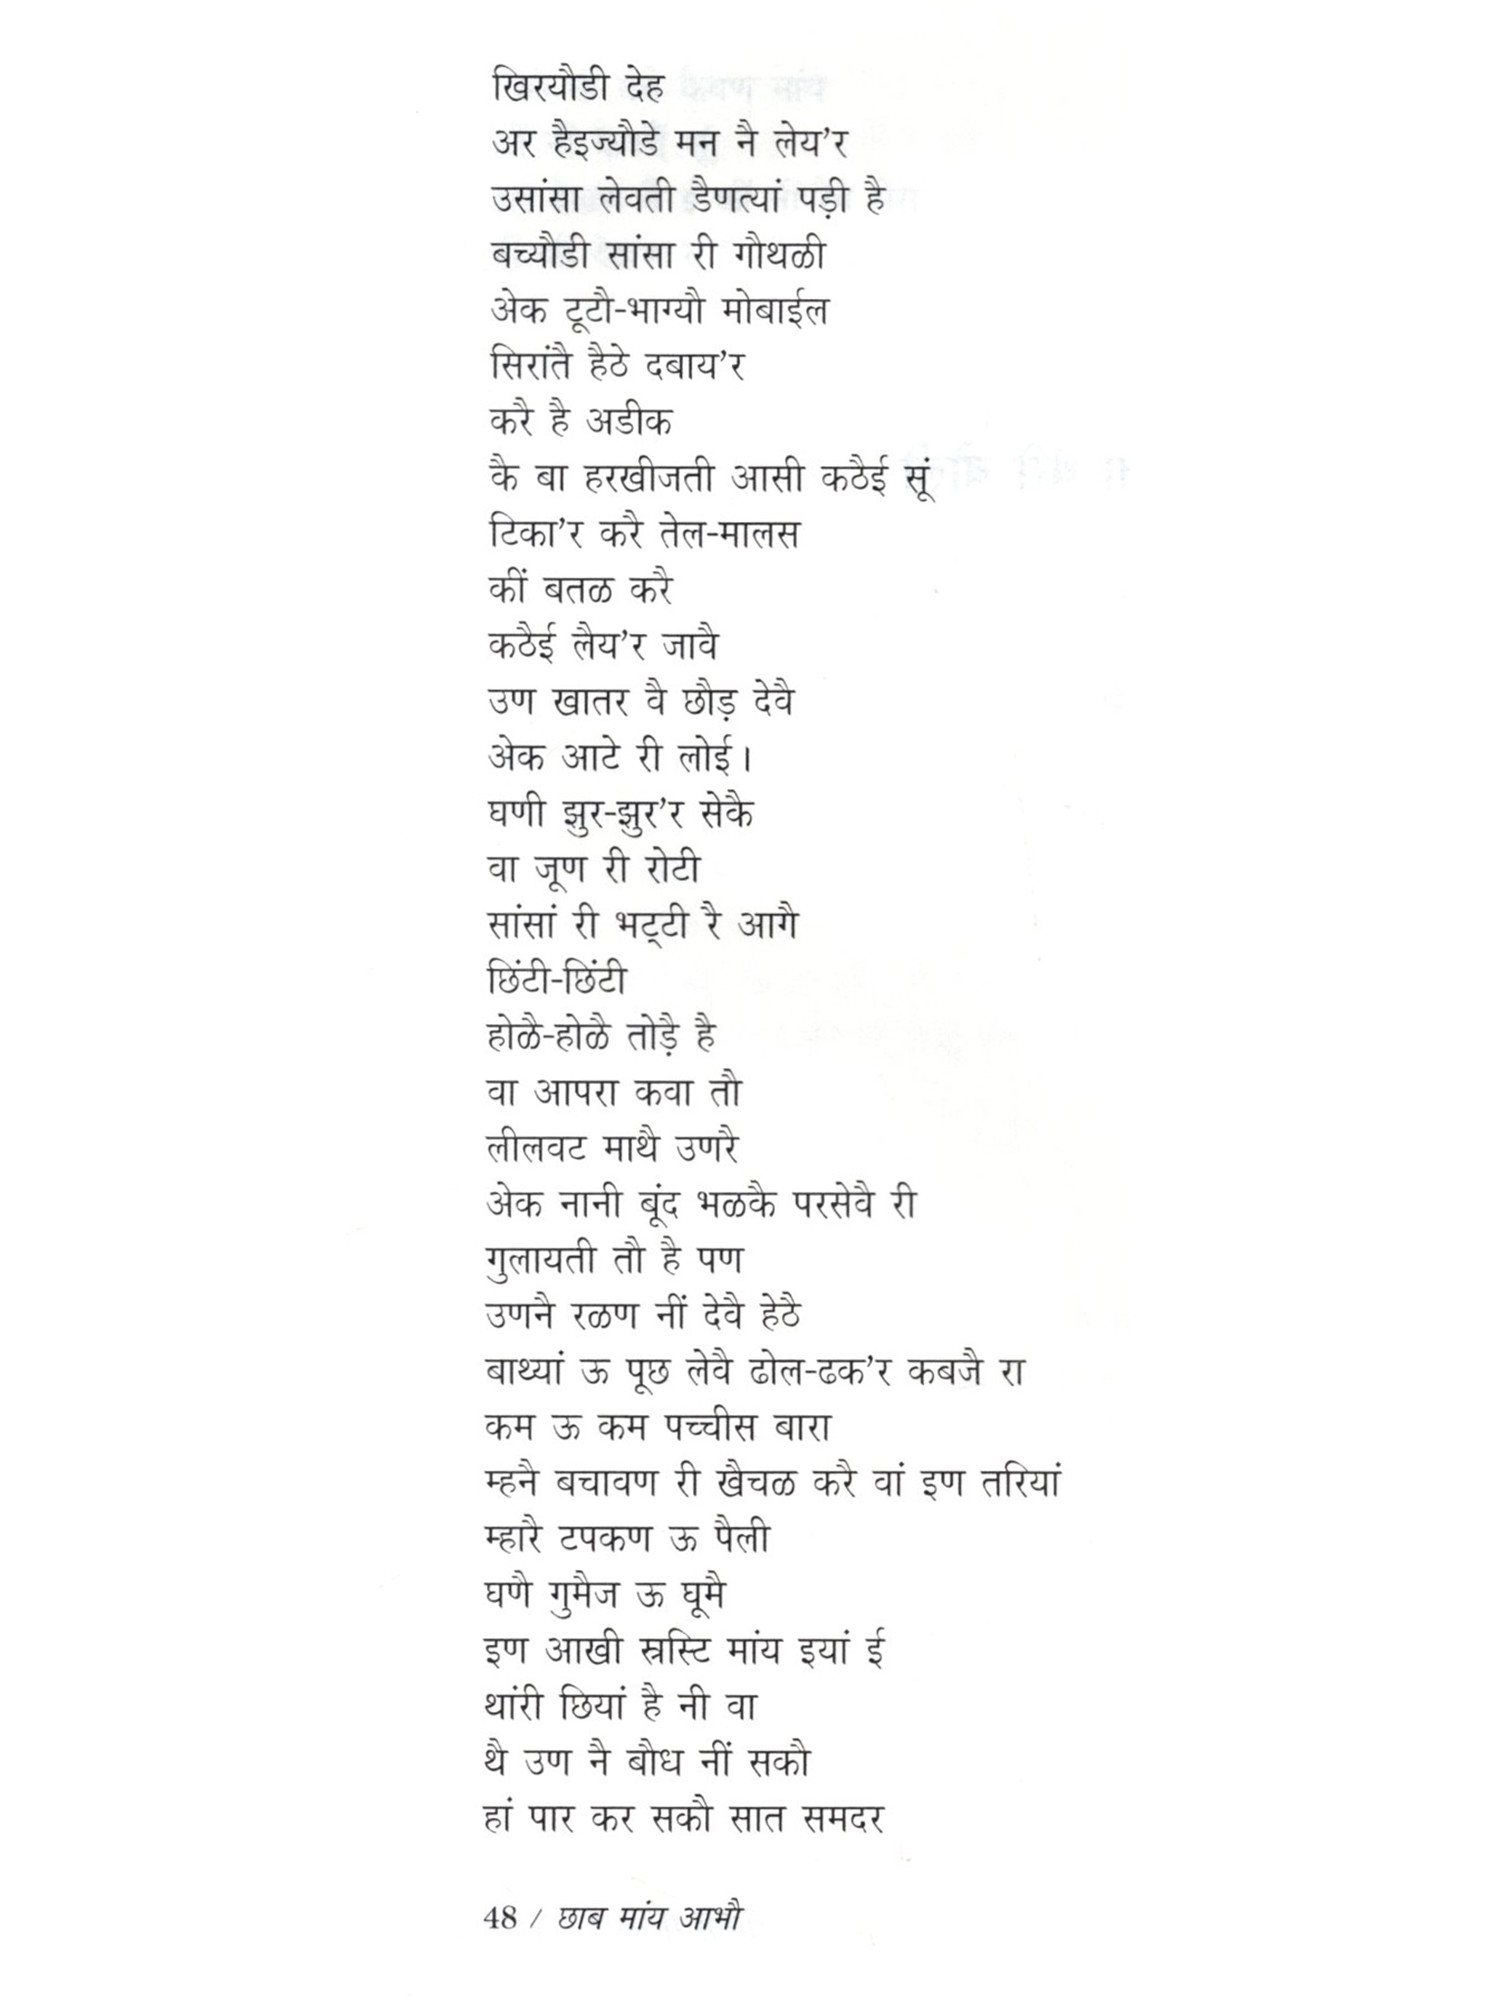 खिरयौडी देह
अर हैइज्यौडे मन नै लेय’र
उसांसा लेवती डैणत्यां पड़ी है
बच्यौडी सांसा री गौथळी
अेक टूटौ-भाग्यौ मोबाईल
सिरांतै हैठे दबाय’र
करै है अडीक
कै बा हरखीजती आसी कठैई सूं
टिका’र करै तेल-मालस
कीं बतळ करै
कठैई लैय’र जावै
उण खातर वै छौड़ देवै
अेक आटे री लोई।
घणी झुर-झुर’र सेकै
वा जूण री रोटी
सांसां री भट्टी रै आगै
छिंटी-छिंटी
होळै-होळै तोड़ै है
वा आपरा कवा तौ
लीलवट माथै उणरै
अेक नानी बूंद भळकै परसेवै री
गुलायती तौ है पण
उणनै रळण नीं देवै हेठै
बाथ्यां ऊ पूछ लेवै ढोल-ढक’र कबजै रा
कम ऊ कम पच्चीस बारा
म्हनै बचावण री खैचळ करै वां इण तरियां
म्हारै टपकण ऊ पैली
घणै गुमैज ऊ घूमै
इण आखी स्रस्टि मांय इयां ई
थांरी छियां है नी वा
थै उण नै बौध नीं सकौ
हां पार कर सकौ सात समदर
48 / छाब मांय आभौ